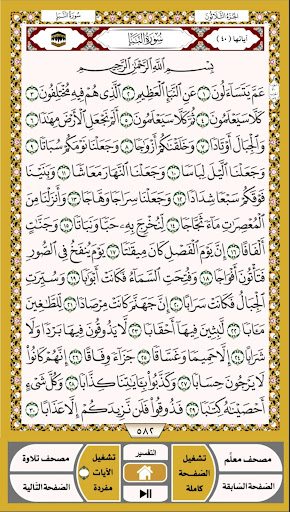 سُورَةُ النَّبَإِ
الجُزْءُ الثَّلَاثُونَ
آياتها (٤٠)
سُورَةُ النَّبَإِ
بِسۡمِ ٱللَّهِ ٱلرَّحۡمَٰنِ ٱلرَّحِيمِ
عَمَّ يَتَسَآءَلُونَ ١ عَنِ ٱلنَّبَإِ ٱلۡعَظِيمِ ٢ ٱلَّذِي هُمۡ فِيهِ مُخۡتَلِفُونَ ٣
كَلَّا سَيَعۡلَمُونَ ٤ ثُمَّ كَلَّا سَيَعۡلَمُونَ ٥ أَلَمۡ نَجۡعَلِ ٱلۡأَرۡضَ مِهَٰدٗا ٦
وَٱلۡجِبَالَ أَوۡتَادٗا ٧ وَخَلَقۡنَٰكُمۡ أَزۡوَٰجٗا ٨ وَجَعَلۡنَا نَوۡمَكُمۡ سُبَاتٗا ٩
وَجَعَلۡنَا ٱلَّيۡلَ لِبَاسٗا ١٠ وَجَعَلۡنَا ٱلنَّهَارَ مَعَاشٗا ١١ وَبَنَيۡنَا
فَوۡقَكُمۡ سَبۡعٗا شِدَادٗا ١٢ وَجَعَلۡنَا سِرَاجٗا وَهَّاجٗا ١٣ وَأَنزَلۡنَا مِنَ
ٱلۡمُعۡصِرَٰتِ مَآءٗ ثَجَّاجٗا ١٤ لِّنُخۡرِجَ بِهِۦ حَبّٗا وَنَبَاتٗا ١٥ وَجَنَّٰتٍ
أَلۡفَافًا ١٦ إِنَّ يَوۡمَ ٱلۡفَصۡلِ كَانَ مِيقَٰتٗا ١٧ يَوۡمَ يُنفَخُ فِي ٱلصُّورِ
فَتَأۡتُونَ أَفۡوَاجٗا ١٨ وَفُتِحَتِ ٱلسَّمَآءُ فَكَانَتۡ أَبۡوَٰبٗا ١٩ وَسُيِّرَتِ
ٱلۡجِبَالُ فَكَانَتۡ سَرَابًا ٢٠ إِنَّ جَهَنَّمَ كَانَتۡ مِرۡصَادٗا ٢١ لِّلطَّٰغِينَ
مَـَٔابٗا ٢٢ لَّٰبِثِينَ فِيهَآ أَحۡقَابٗا ٢٣ لَّا يَذُوقُونَ فِيهَا بَرۡدٗا وَلَا
شَرَابًا ٢٤ إِلَّا حَمِيمٗا وَغَسَّاقٗا ٢٥ جَزَآءٗ وِفَاقًا ٢٦ إِنَّهُمۡ كَانُواْ
لَا يَرۡجُونَ حِسَابٗا ٢٧ وَكَذَّبُواْ بِـَٔايَٰتِنَا كِذَّابٗا ٢٨ وَكُلَّ شَيۡءٍ
أَحۡصَيۡنَٰهُ كِتَٰبٗا ٢٩ فَذُوقُواْ فَلَن نَّزِيدَكُمۡ إِلَّا عَذَابًا ٣٠
٥٨٢
مصحف معلّم
تشغيل الصفحة كاملة
التفسير
تشغيل الآيات مفردة
مصحف تلاوة
الصفحة السابقة
الصفحة التالية